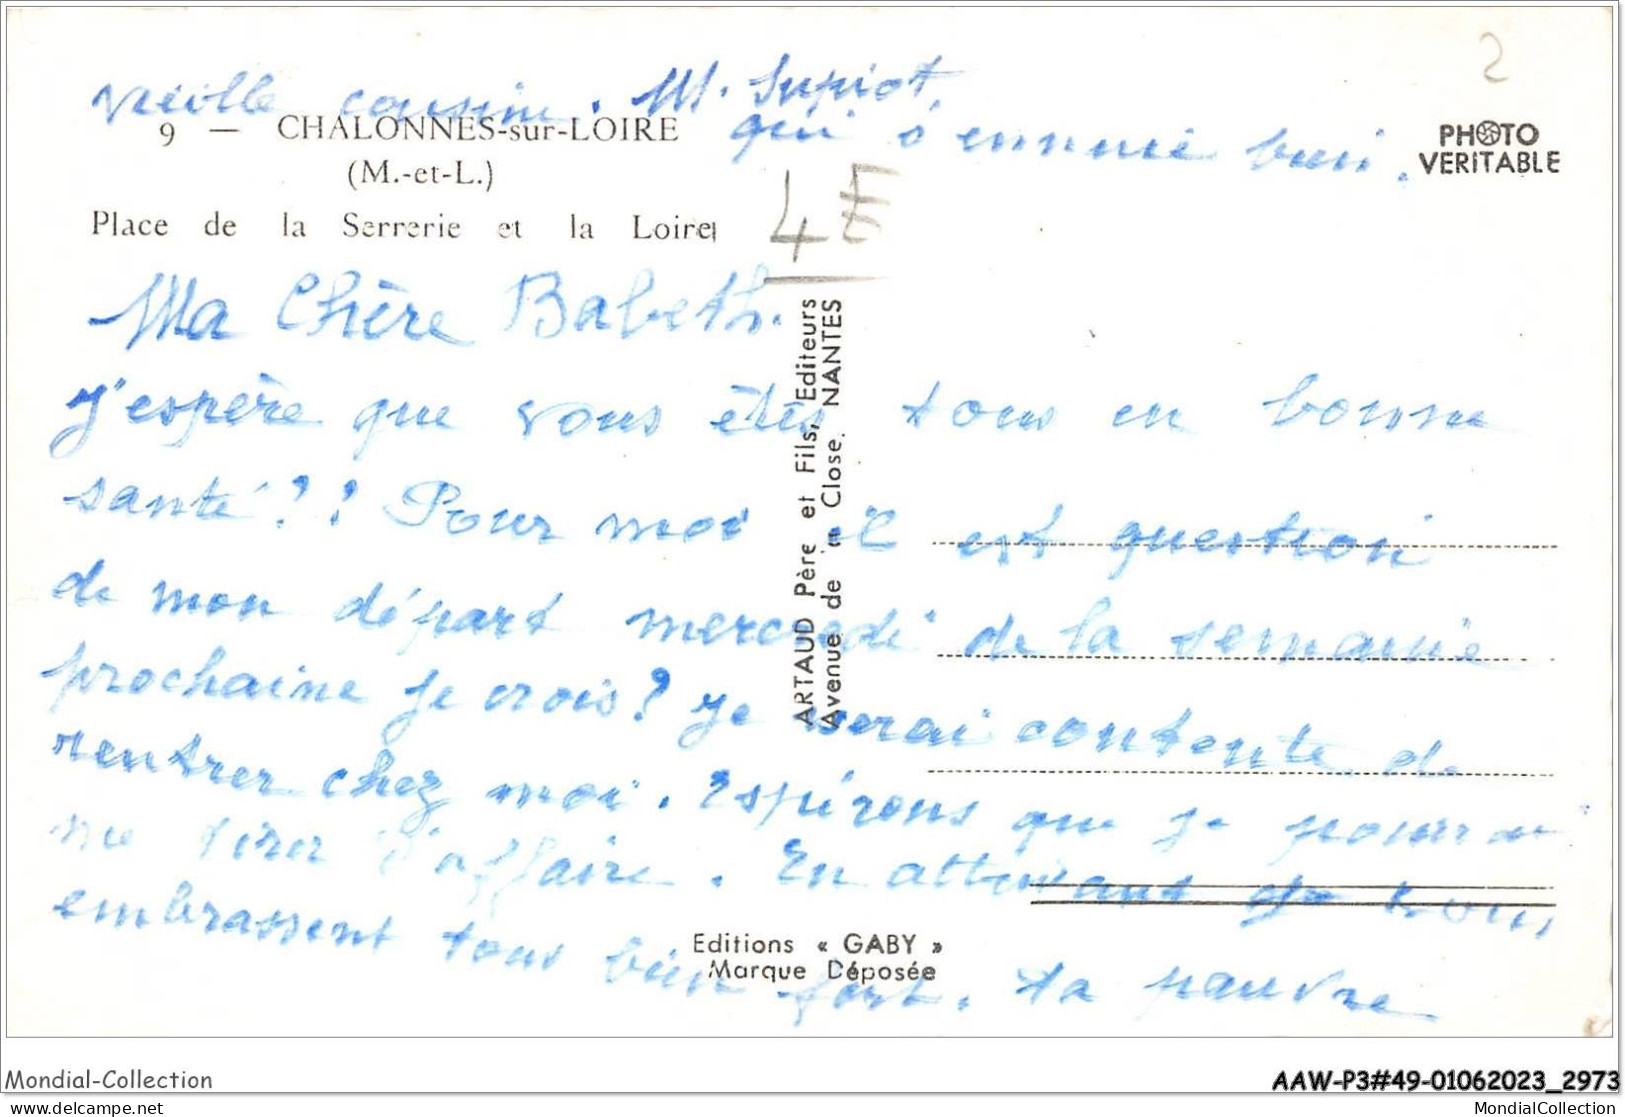 2
vieille cousine. M. Supiot,
qui s'ennuie bien.
9 — CHALONNES-sur-LOIRE
(M.-et-L.)
Place de la Serrerie et la Loire
PHOTO
VERITABLE
4E
Ma Chère Babeth.
j'espère que vous êtes tous en bonne
santé?? Pour moi il est question
de mon départ mercredi de la semaine
prochaine je crois? je serai contente de
rentrer chez moi. Espérons que je pourrai
me tirer d'affaire. En attendant je vous
embrassent tous bien fort. ta pauvre
ARTAUD Père et Fils, Editeurs
Avenue de la Close. NANTES
Editions « GABY »
Marque Déposée
Mondial-Collection
AAW-P3#49-01062023_2973
delcampe.net
MondialCollection